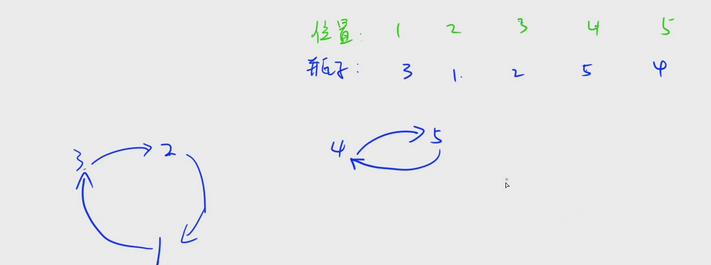 位置: 1 2 3 4 5
瓶子: 3 1. 2 5 4
3 2 4 5
1